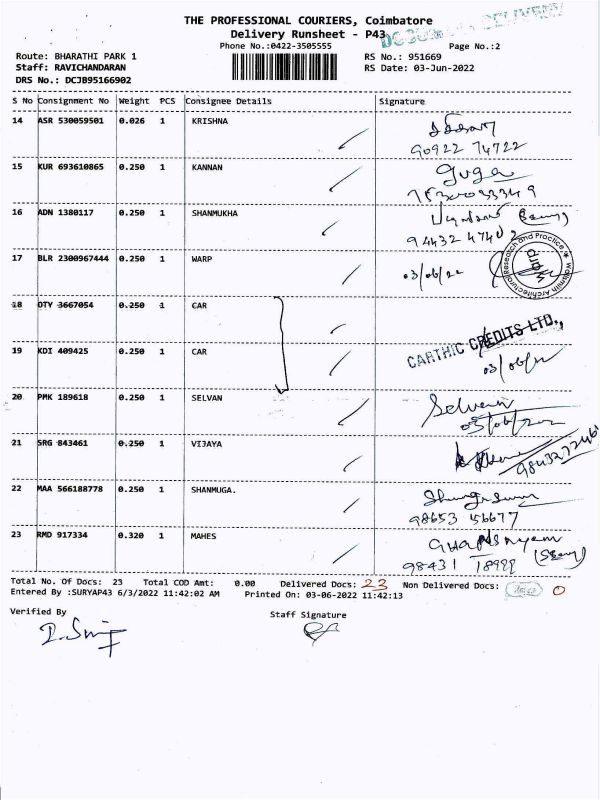 THE PROFESSIONAL COURIERS, Coimbatore
Delivery Runsheet - P43
DELIVERY
Phone No.:0422-3505555
Page No.:2
Route: BHARATHI PARK 1
RS No.: 951669
Staff: RAVICHANDARAN
RS Date: 03-Jun-2022
DRS No.: DCJB95166902
S No Consignment No Weight PCS Consignee Details Signature
14 ASR 530059501 0.026 1 KRISHNA
90922 74722
15 KUR 693610865 0.250 1 KANNAN
guga
16 ADN 1380117 0.250 1 SHANMUKHA
94432 47402
17 BLR 2300967444 0.250 1 WARP 03/06/22
Research and Practice
Architectural
18 DTY 3667054 0.250 1 CAR
19 KDI 409425 0.250 1 CAR
CARTHIC CREDITS LTD.,
03/06/22
20 PMK 189618 0.250 1 SELVAN
Selvan
03/06/22
21 SRG 843461 0.250 1 VIJAYA
22 MAA 566188778 0.250 1 SHANMUGA.
98653 56677
23 RMD 917334 0.320 1 MAHES
98431 18999
Total No. Of Docs: 23 Total COD Amt: 0.00 Delivered Docs: 23 Non Delivered Docs: 0
Entered By :SURYAP43 6/3/2022 11:42:02 AM Printed On: 03-06-2022 11:42:13
Verified By
Staff Signature